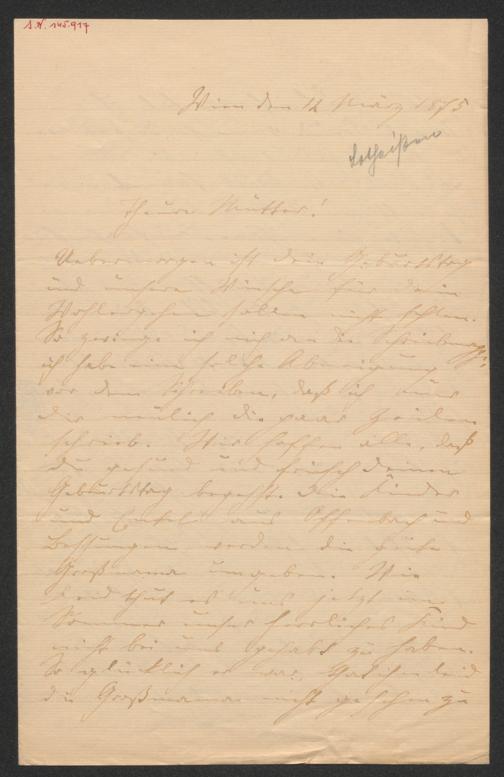 I.N. 145.917
Wien den 12 März 1875
Lotheißen
Theure Mutter!
Uebermorgen ist dein Geburtstag
und unsere Wünsche für dein
Wohlergehen sollen nicht fehlen.
So zwinge ich mich an die
ich habe eine solche Abneigung
vor dem Schreiben, daß ich nur
dir neulich die paar Zeilen
schrieb. Wir hoffen alle, daß
du gesund und frisch deinen
Geburtstag begehst. Die Kinder
und Enkel aus Offenbach und
Bessungen werden die gute
Großmama umgeben. Wie
leid thut es uns jetzt im
Sommer unser herrliches Kind
nicht bei uns gehabt zu haben.
So glücklich er war, that ihm leid
die Großmama nicht gesehen zu